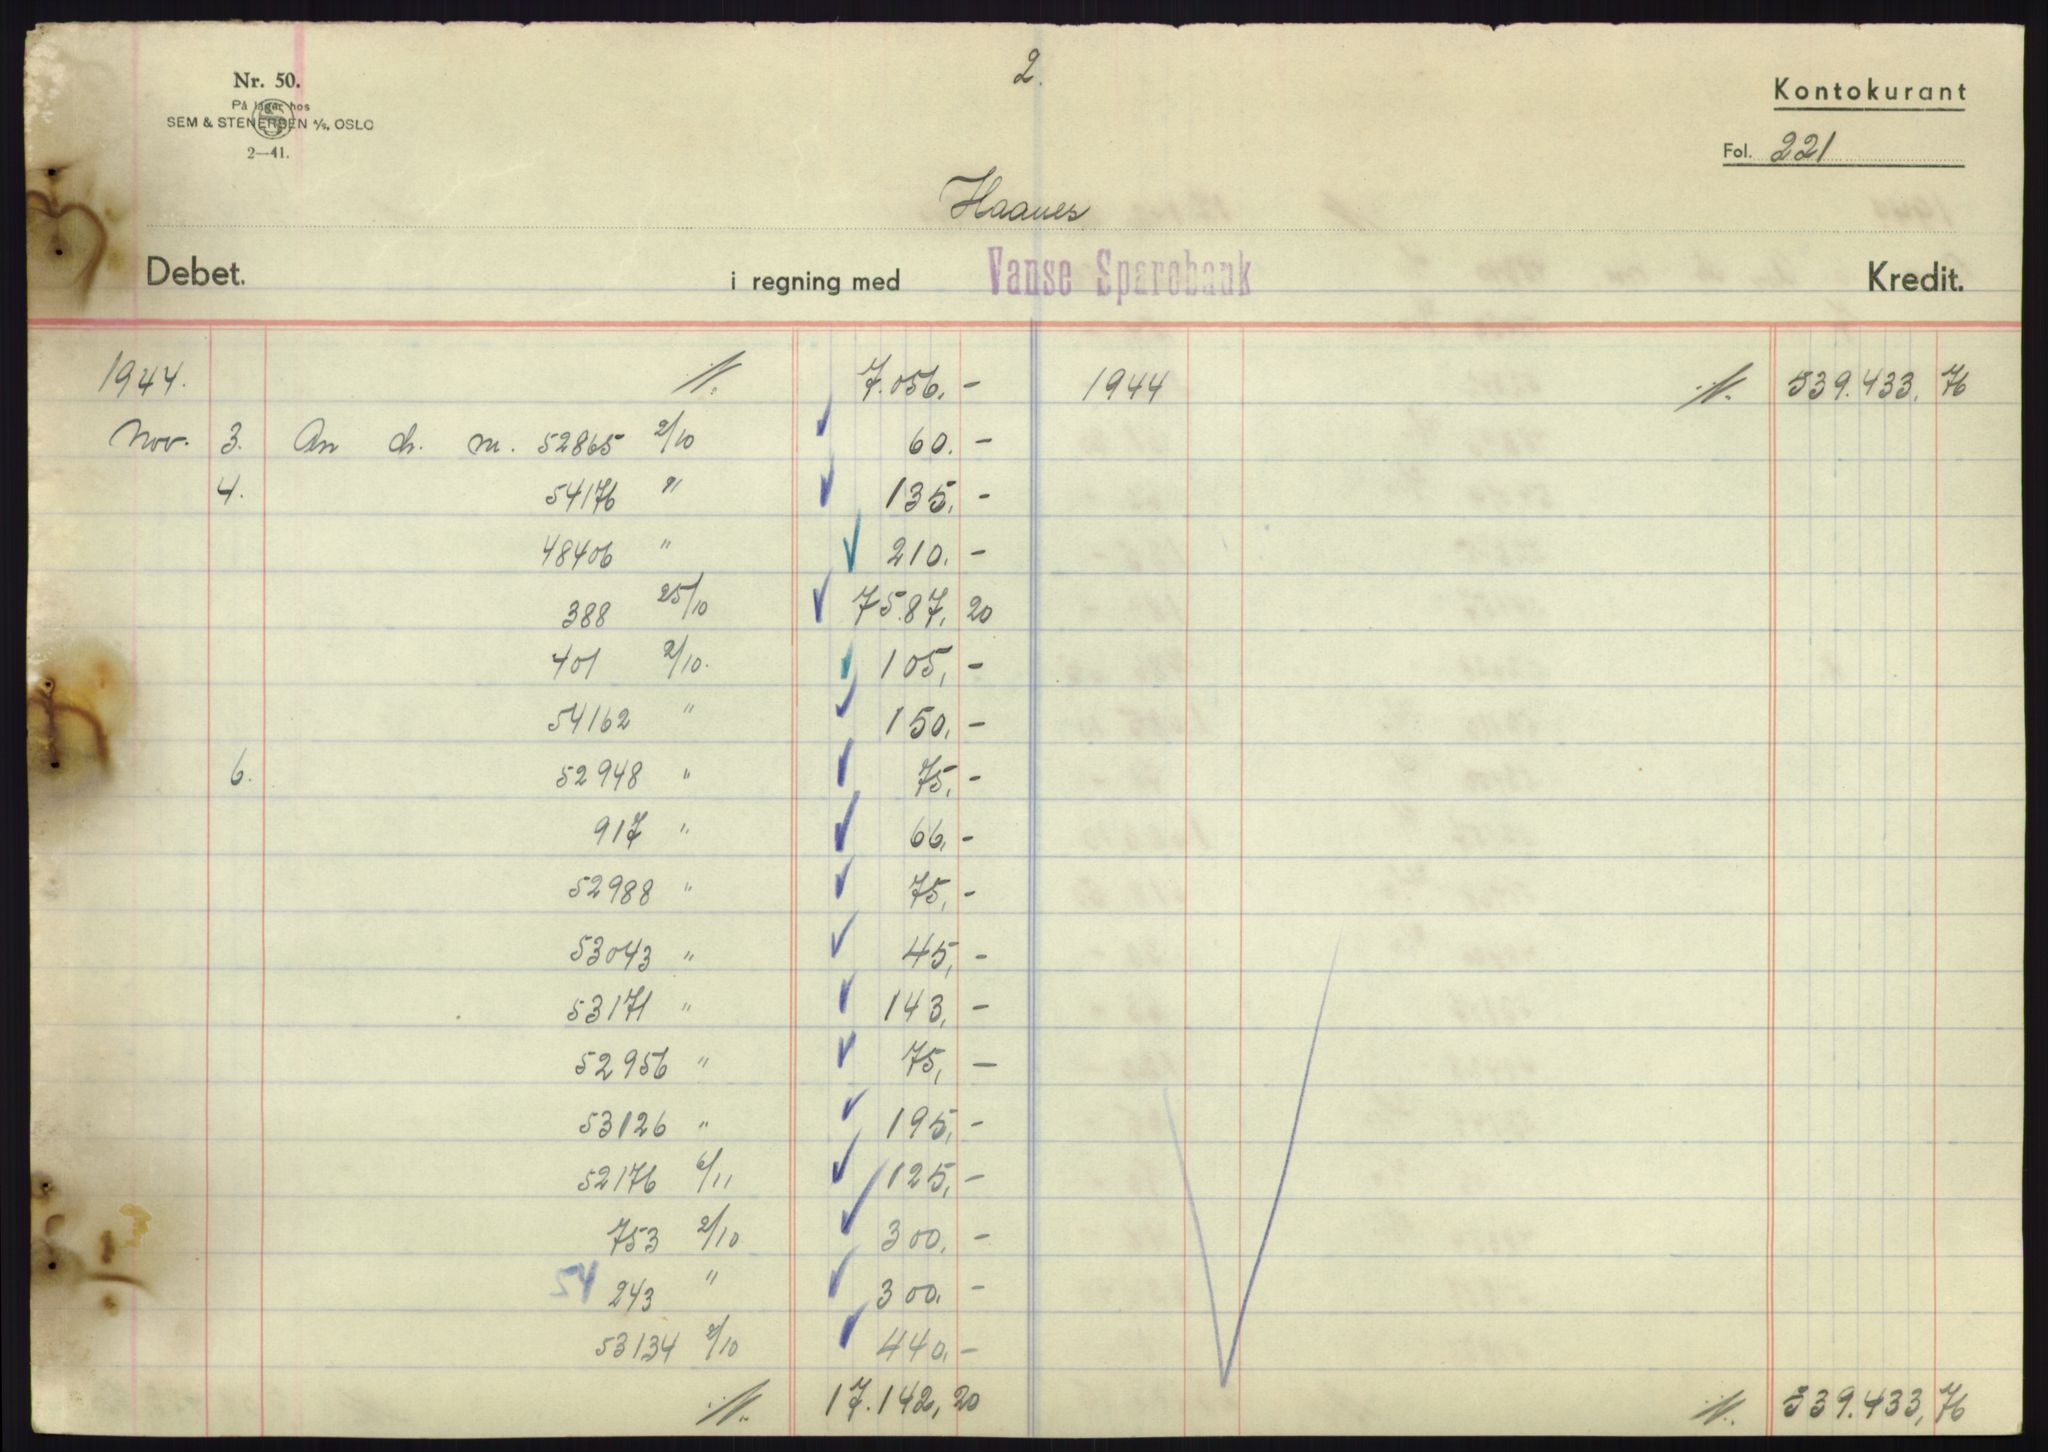 2.
Nr. 50.
På lager hos
SEM & STENERSEN A/S, OSLO
2—41.
Kontokurant
Fol. 221
Haanes
Debet. i regning med Vanse Sparebank Kredit.
1944. 7.056.- 1944 539.433,76
Nov. 3. An ch. nr. 52865 2/10 60.-
4. 54176 " 135,-
48406 " 210.-
388 25/10 7587,20
401 2/10. 105,-
54162 " 150,-
6. 52948 " 75,-
917 " 66,-
52988 " 75,-
53043 " 45,-
53171 " 143,-
52956 " 75,-
53126 " 195,-
52176 6/11 125,-
753 2/10 300,-
54 243 " 300.-
53134 2/10 440,-
17.142,20 539.433,76